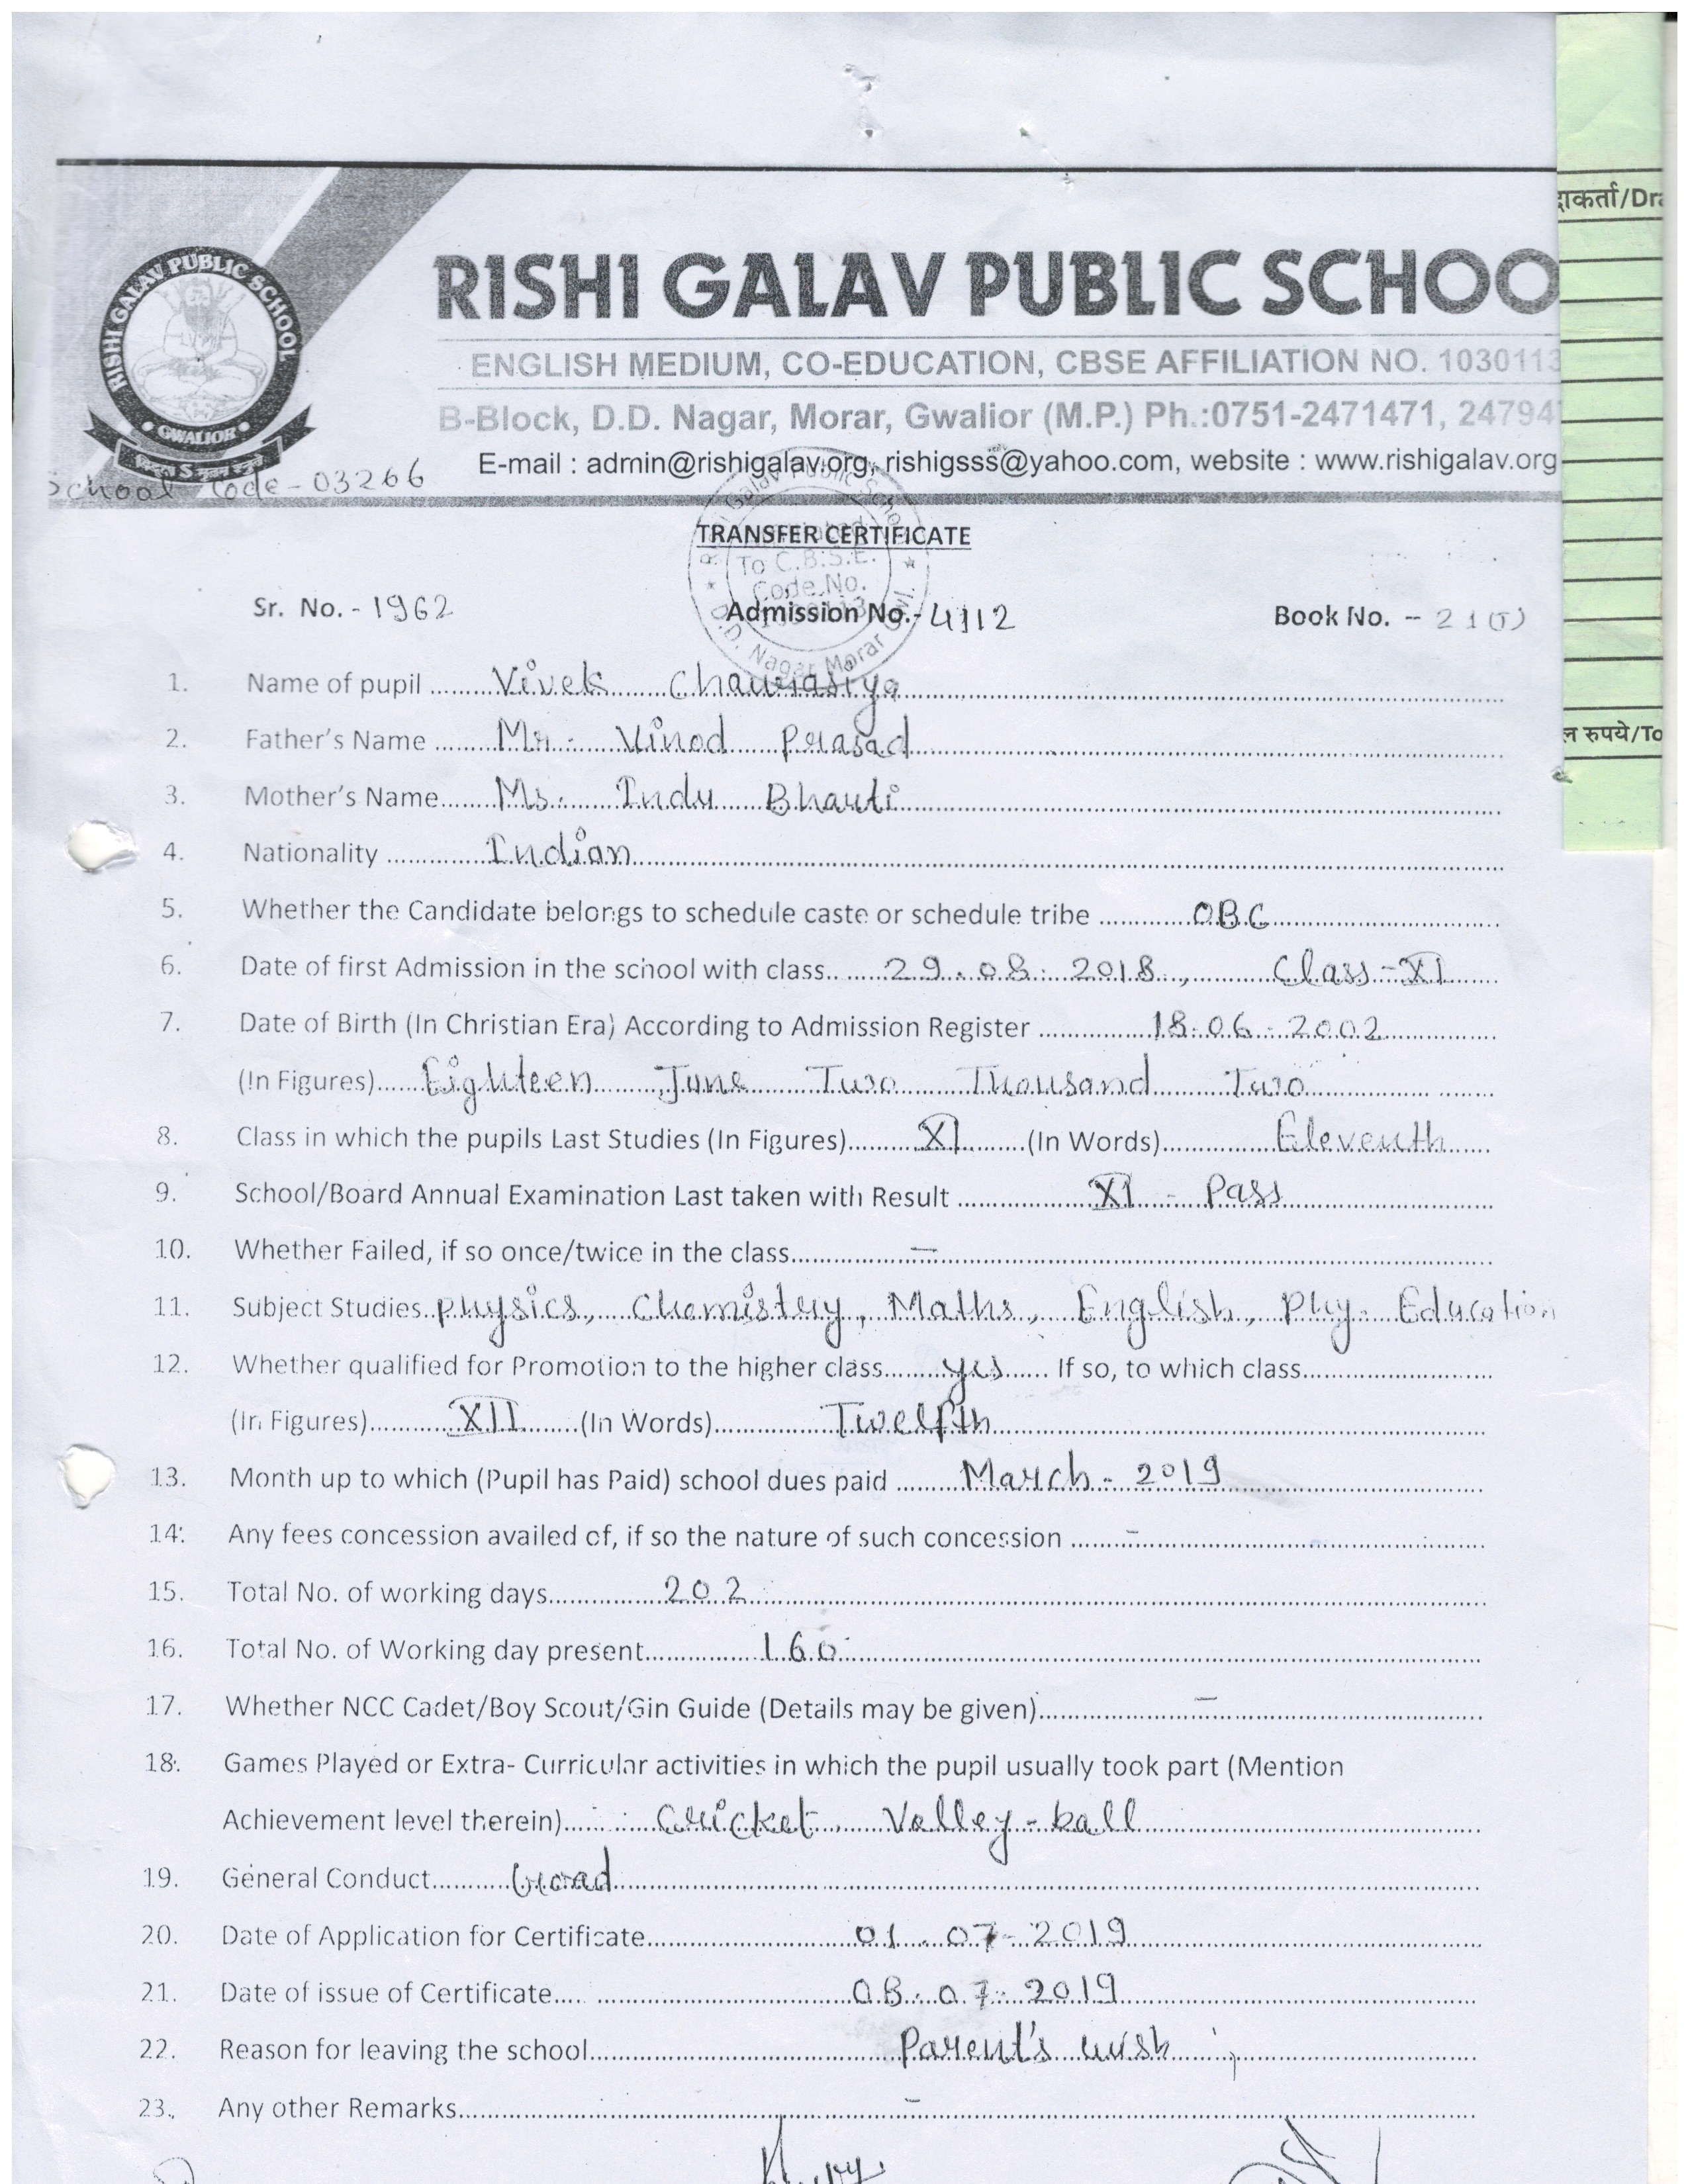 RISHI GALAV PUBLIC SCHOOL
GWALIOR
RISHI GALAV PUBLIC SCHOO
ENGLISH MEDIUM, CO-EDUCATION, CBSE AFFILIATION NO. 1030113
B-Block, D.D. Nagar, Morar, Gwalior (M.P.) Ph.:0751-2471471, 24794
E-mail : admin@rishigalav.org, rishigsss@yahoo.com, website : www.rishigalav.org
School Code - 03266
TRANSFER CERTIFICATE
To C.B.S.E.
Code No.
D.D. Nagar Morar
Sr. No. - 1962 Admission No.- 4112 Book No. - 21
1. Name of pupil ........ Vivek Chaurasiya
2. Father's Name ........ Mr. Vinod Prasad
3. Mother's Name........ Ms. Indu Bharti
4. Nationality ........ Indian
5. Whether the Candidate belongs to schedule caste or schedule tribe ........ OBC
6. Date of first Admission in the school with class........ 29.08.2018, Class-XI
7. Date of Birth (In Christian Era) According to Admission Register ........ 18.06.2002
(In Figures)...... Eighteen June Two Thousand Two
8. Class in which the pupils Last Studies (In Figures)........ XI ........(In Words)........ Eleventh
9. School/Board Annual Examination Last taken with Result ........ XI - Pass
10. Whether Failed, if so once/twice in the class........ —
11. Subject Studies.. Physics, Chemistry, Maths, English, Phy. Education
12. Whether qualified for Promotion to the higher class........ yes ...... If so, to which class........
(In Figures)........ XII ........(In Words)........ Twelfth
13. Month up to which (Pupil has Paid) school dues paid ........ March - 2019
14. Any fees concession availed of, if so the nature of such concession ........ -
15. Total No. of working days........ 202
16. Total No. of Working day present........ 160
17. Whether NCC Cadet/Boy Scout/Gin Guide (Details may be given)........ —
18. Games Played or Extra- Curricular activities in which the pupil usually took part (Mention
Achievement level therein)........ Cricket, Volley-ball
19. General Conduct........ Good
20. Date of Application for Certificate........ 01.07-2019
21. Date of issue of Certificate........ 08.07.2019
22. Reason for leaving the school........ Parent's wish
23. Any other Remarks........ -